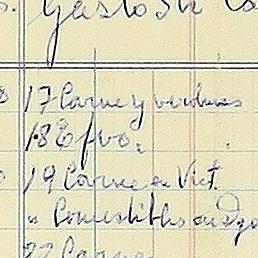 Gastos
17 Carne y verduras
18 Efvo.
19 Carne en Vict.
" Comestibles
22 Carne